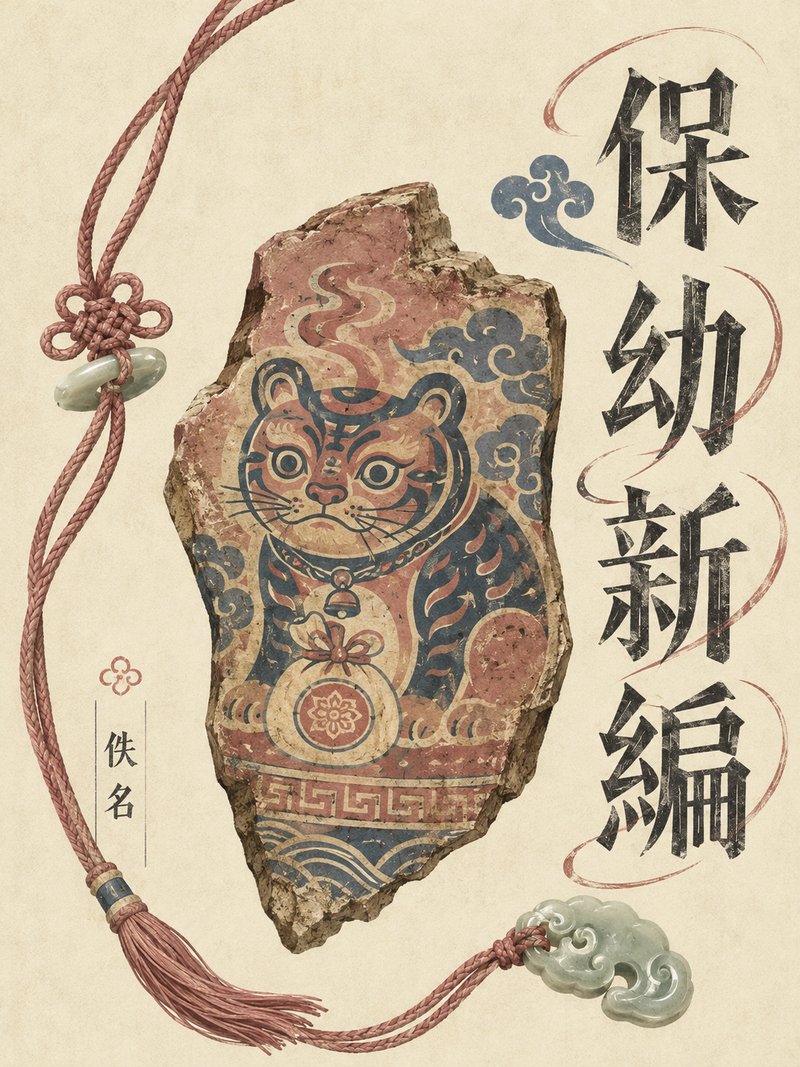 保幼新編
佚名